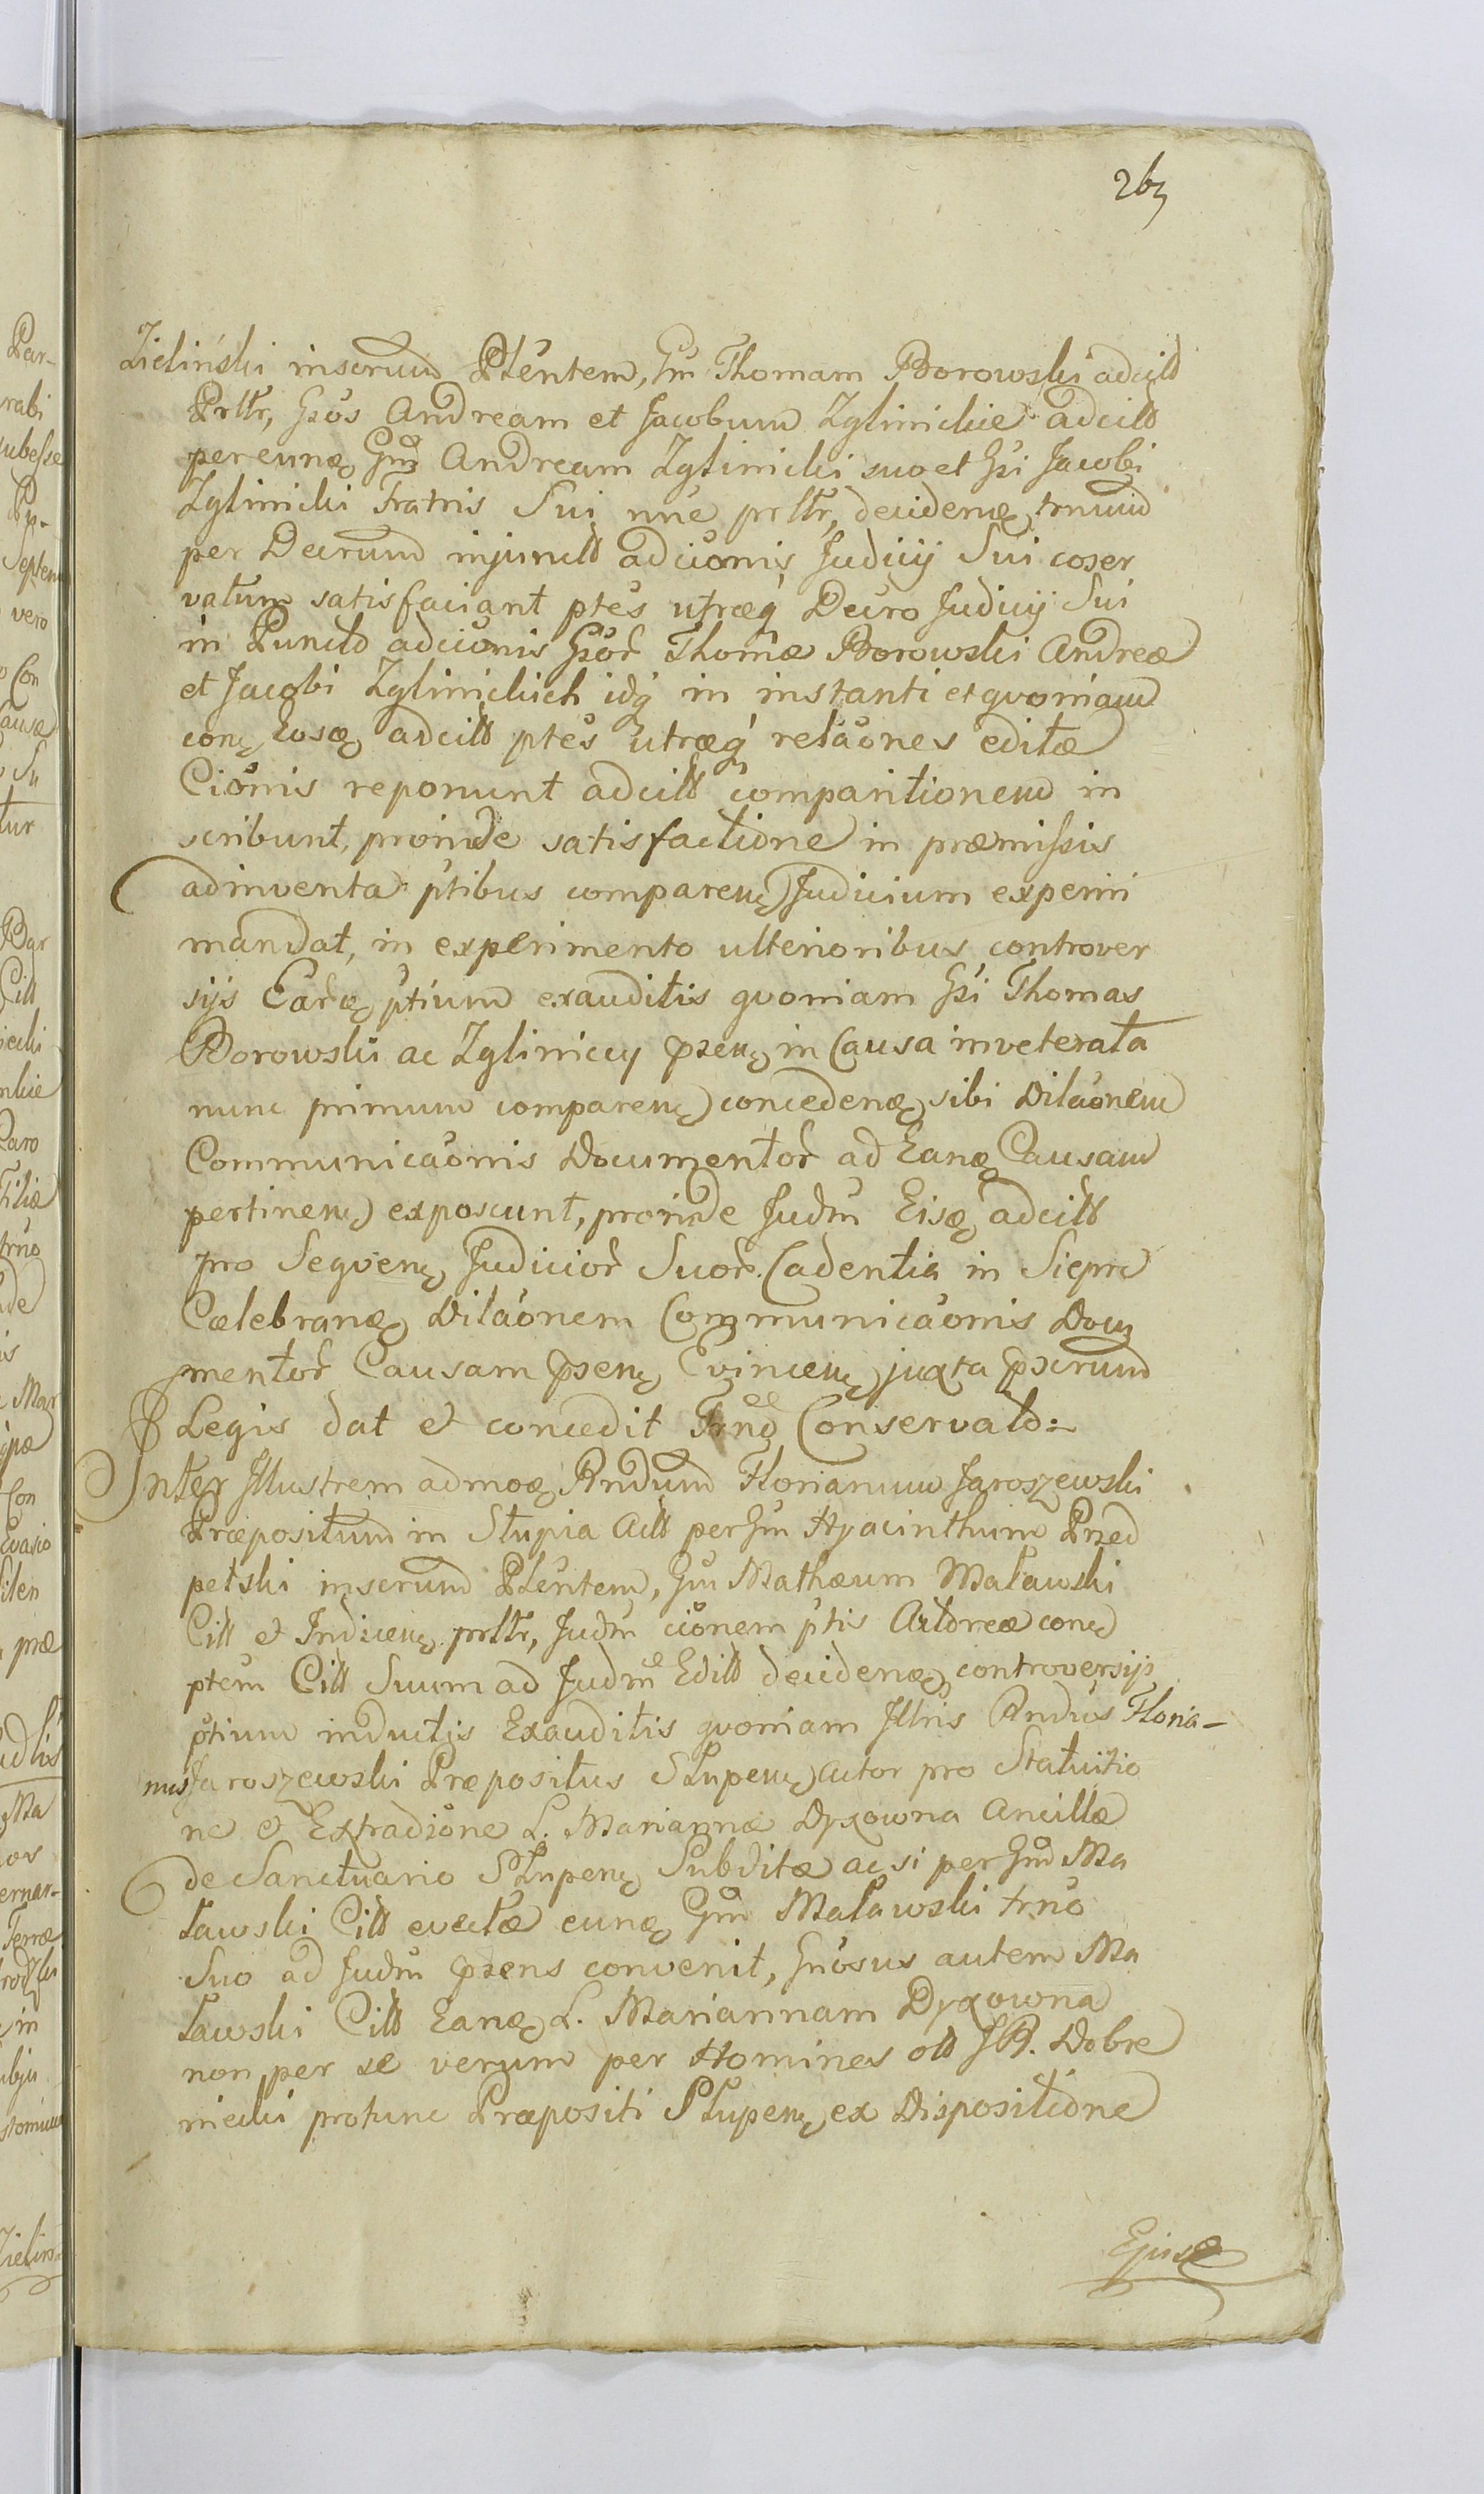 263
Zielinski inserum Plentem, Gm Thomam Borowski adcitt
Prltr, Gsos Andream et Jacobum Zglinickie adcitt
per eunq Gm Andream Zglinicki suo et Gsi Jacobi
Zglinicki Fratris Sui nne prltr, decidenq trnum
per Decrum injunctt adcionis Judicij Sui coser
vatum satisfaciant ptes utraeq Decro Judicij Sui
in Puncto adcionis Gsor Thomae Borowski Andreae
et Jacobi Zglinickich idq in instanti et qvoniam
conq Eosq adcitt ptes utraeq relaones editae
Cionis reponunt adcitt comparitionem in
scribunt, proinde satisfactione in praemissis
adinventa ptibus comparenq Judicium experiri
mandat, in experimento ulterioribus controver
sijs Earq ptium exauditis qvoniam Gsi Thomas
Borowski ac Zgliniccy psenq in Causa inveterata
nunc primum comparenq concedenq sibi Dilaonem
Communicaonis Documentor ad Eanq Causam
pertinenq exposcunt, proinde Judm Eisq adcitt
pro Seqvenq Judicior Suor Cadentia in Siepre
Caelebranq Dilaonem Communicaonis Docu
mentor Causam psenq Evincenq juxta pscrum
Legis dat et concedit Trno Conservato
Inter Illustrem admoq Rndum Florianum Jaroszewski
Praepositum in Słupia Actt per Gm Hyacinthum Przed
petski inserum Plentem, Gm Mathaeum Maławski
Citt et Indicenq prltr, Judm cionem ptis Actoreae conq
ptem Citt Suum ad Judm Editt decidenq controversijs
ptium inductis Exauditis qvoniam Illris Rndus Floria-
nus Jaroszewski Praepositus Słupenq actor pro Statuitio
ne et Extradione L. Mariannae Dyxowna Ancillae
de Sanctuario Słupenq Subditae ac si per Gm Ma
ławski Citt evectae eunq Gm Maławski trno
Suo ad Judm psens convenit, Gnosus autem Ma
ławski Citt Eanq L. Mariannam Dyxowna
non per se verum per Homines ott JR. Dobre
niecki protunc Praepositi Słupenq ex Dispositione
Ejusq